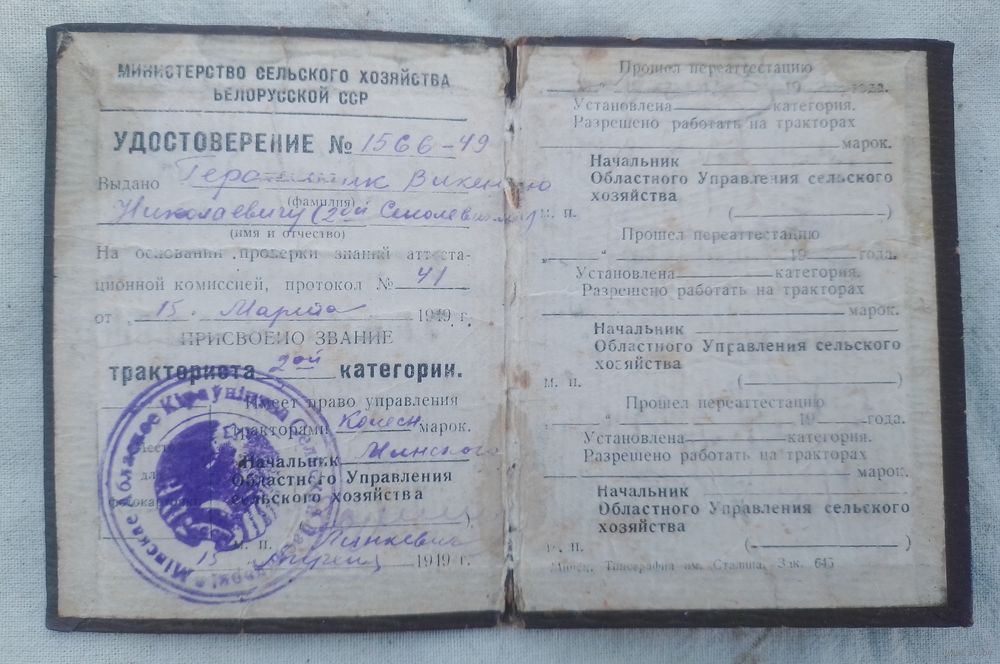 МИНИСТЕРСТВО СЕЛЬСКОГО ХОЗЯЙСТВА
БЕЛОРУССКОЙ ССР
УДОСТОВЕРЕНИЕ № 1566-49
Выдано Викентию
(фамилия)
Николаевичу (2ой
(имя и отчество)
На основании проверки знаний аттеста-
ционной комиссией, протокол № 41
от „ 15. Марта 1949 г.
ПРИСВОЕНО ЗВАНИЕ
тракториста 2ой категории.
Имеет право управления
тракторами Колесн марок.
Место
для
фотокарточки
Начальник Минского
Областного Управления
сельского хозяйства
М. П.
15 1949 г.
Мінскае Абласное Кіраўніцтва
Прошел переаттестацию
„ “ 19 года.
Установлена категория.
Разрешено работать на тракторах
марок.
Начальник
Областного Управления сельского
хозяйства
М. П. ( )
Прошел переаттестацию
„ “ 19 года.
Установлена категория.
Разрешено работать на тракторах
марок.
Начальник
Областного Управления сельского
хозяйства
М. П. ( )
Прошел переаттестацию
„ “ 19 года.
Установлена категория.
Разрешено работать на тракторах
марок.
Начальник
Областного Управления сельского
хозяйства
М. П. ( )
Минск, Типография им. Сталина, Зак. 645